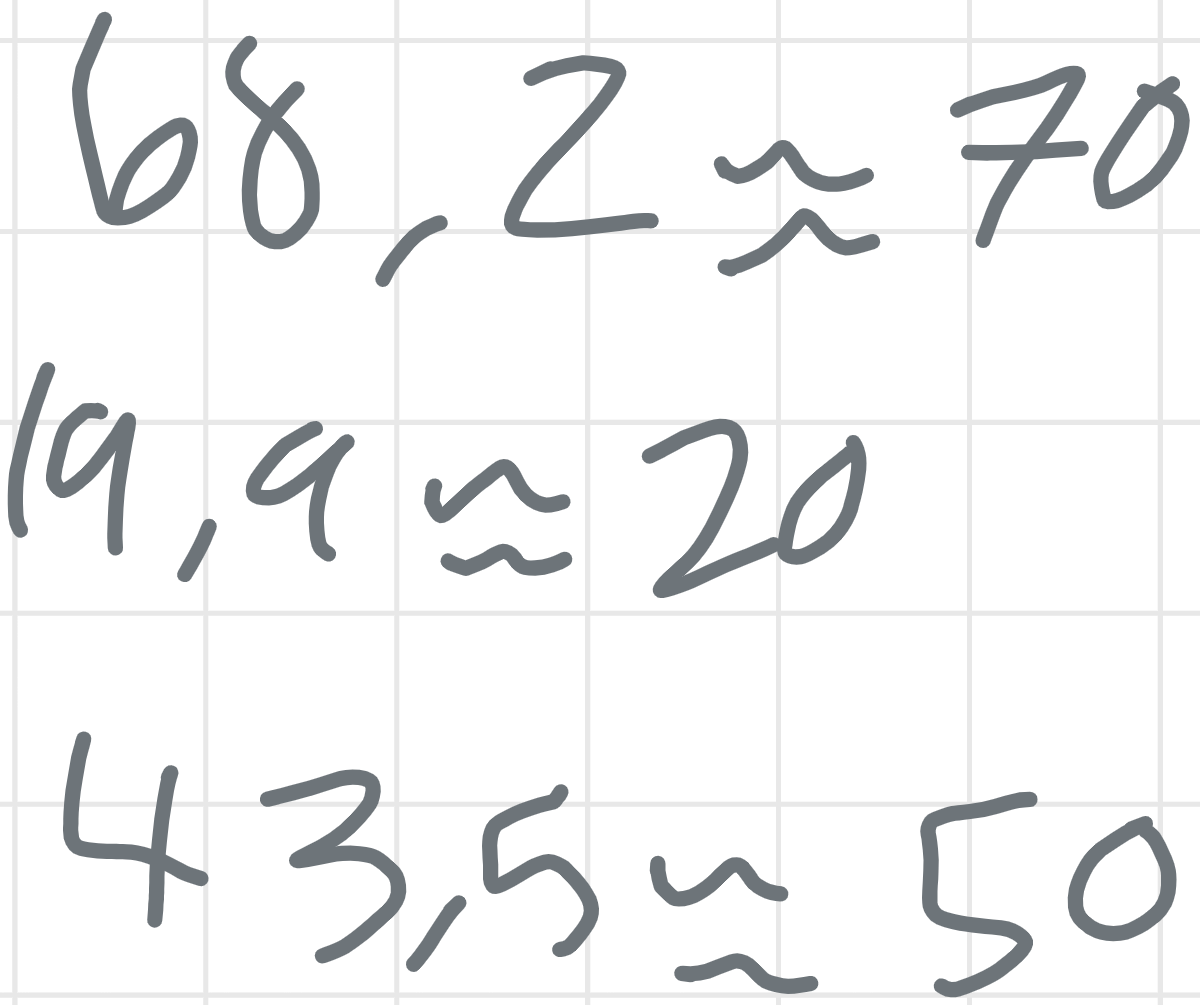 68,2 ≈ 70
19,9 ≈ 20
43,5 ≈ 50